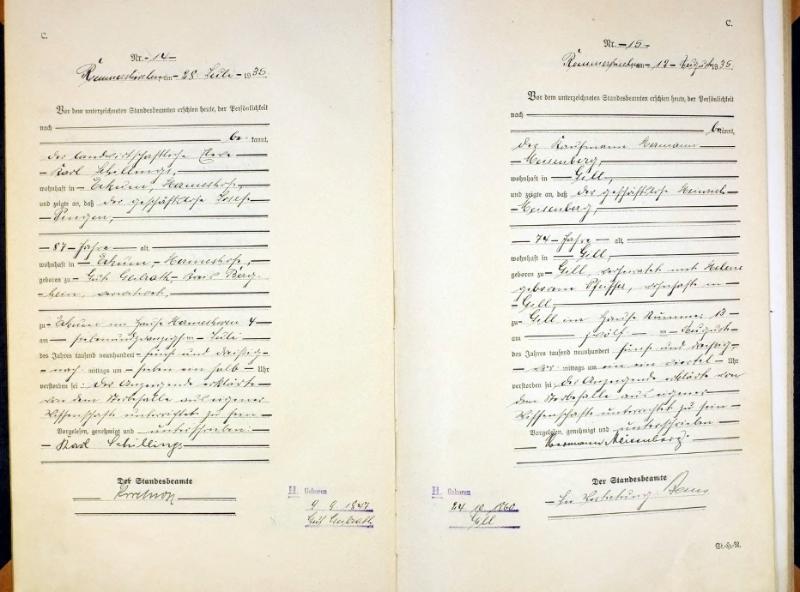 C.
Nr. 14
Rommerskirchen am 28 Juli 1935.
Vor dem unterzeichneten Standesbeamten erschien heute, der Persönlichkeit
nach
be kannt,
der landwirtschaftliche
Karl Schillings,
wohnhaft in Eckum,
und zeigte an, daß der geschäftslose Josef
87 Jahre alt,
wohnhaft in Eckum,
geboren zu Gut Geilrath Kreis Berg-
heim,
zu Eckum im Hause 4
am siebenundzwanzigsten Juli
des Jahres tausend neunhundert fünf und dreißig
nach mittags um sieben ein halb Uhr
verstorben sei; der Anzeigende erklärte
von dem Sterbefalle aus eigener
Wissenschaft unterrichtet zu sein
Vorgelesen, genehmigt und unterschrieben:
Karl Schillings
Der Standesbeamte
H. Geboren
9. 9. 1847
Gut Geilrath
C.
Nr. 15
Rommerskirchen am 12 August 1935.
Vor dem unterzeichneten Standesbeamten erschien heute, der Persönlichkeit
nach
bekannt,
der Kaufmann Hermann
Meisenberg,
wohnhaft in Gill,
und zeigte an, daß der geschäftslose Heinrich
Meisenberg,
74 Jahre alt,
wohnhaft in Gill,
geboren zu Gill, verheiratet mit Helene
geborene Pfeiffer, wohnhaft in
Gill,
zu Gill im Hause Nummer 13
am zwölften August
des Jahres tausend neunhundert fünf und dreißig,
vor mittags um ein ein viertel Uhr
verstorben sei; der Anzeigende erklärte von
dem Sterbefalle aus eigener
Wissenschaft unterrichtet zu sein
Vorgelesen, genehmigt und unterschrieben
Hermann Meisenberg.
Der Standesbeamte
In Vertretung
H. Geboren
24 10 1860
Gill